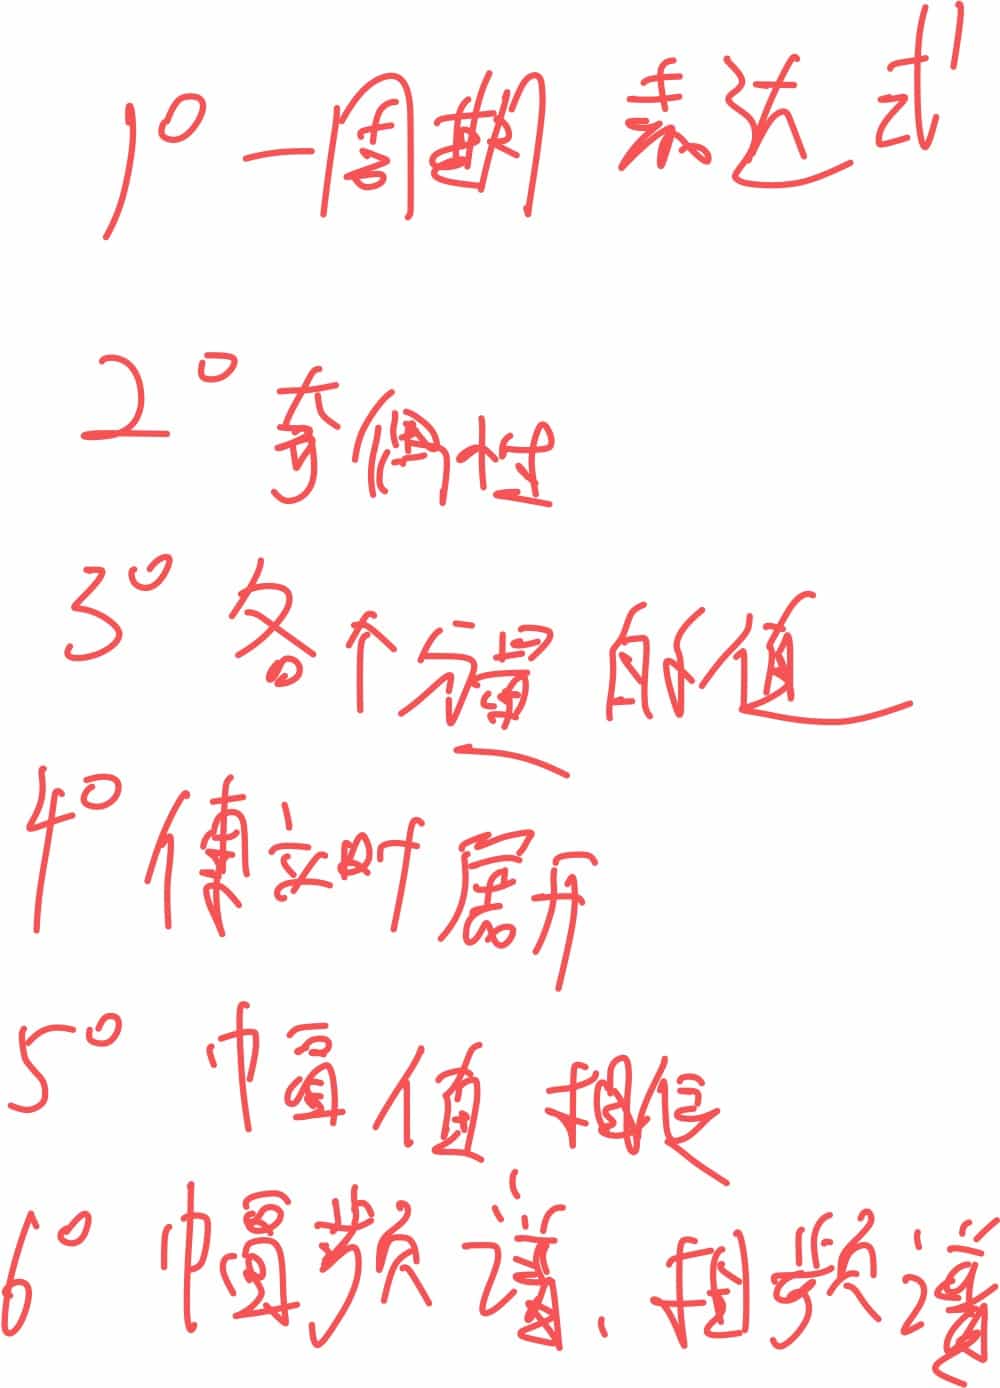 1° 一周期 表达式
2° 奇偶性
3° 各个分量 的值
4° 傅立叶展开
5° 幅值 相位
6° 幅频谱、相频谱